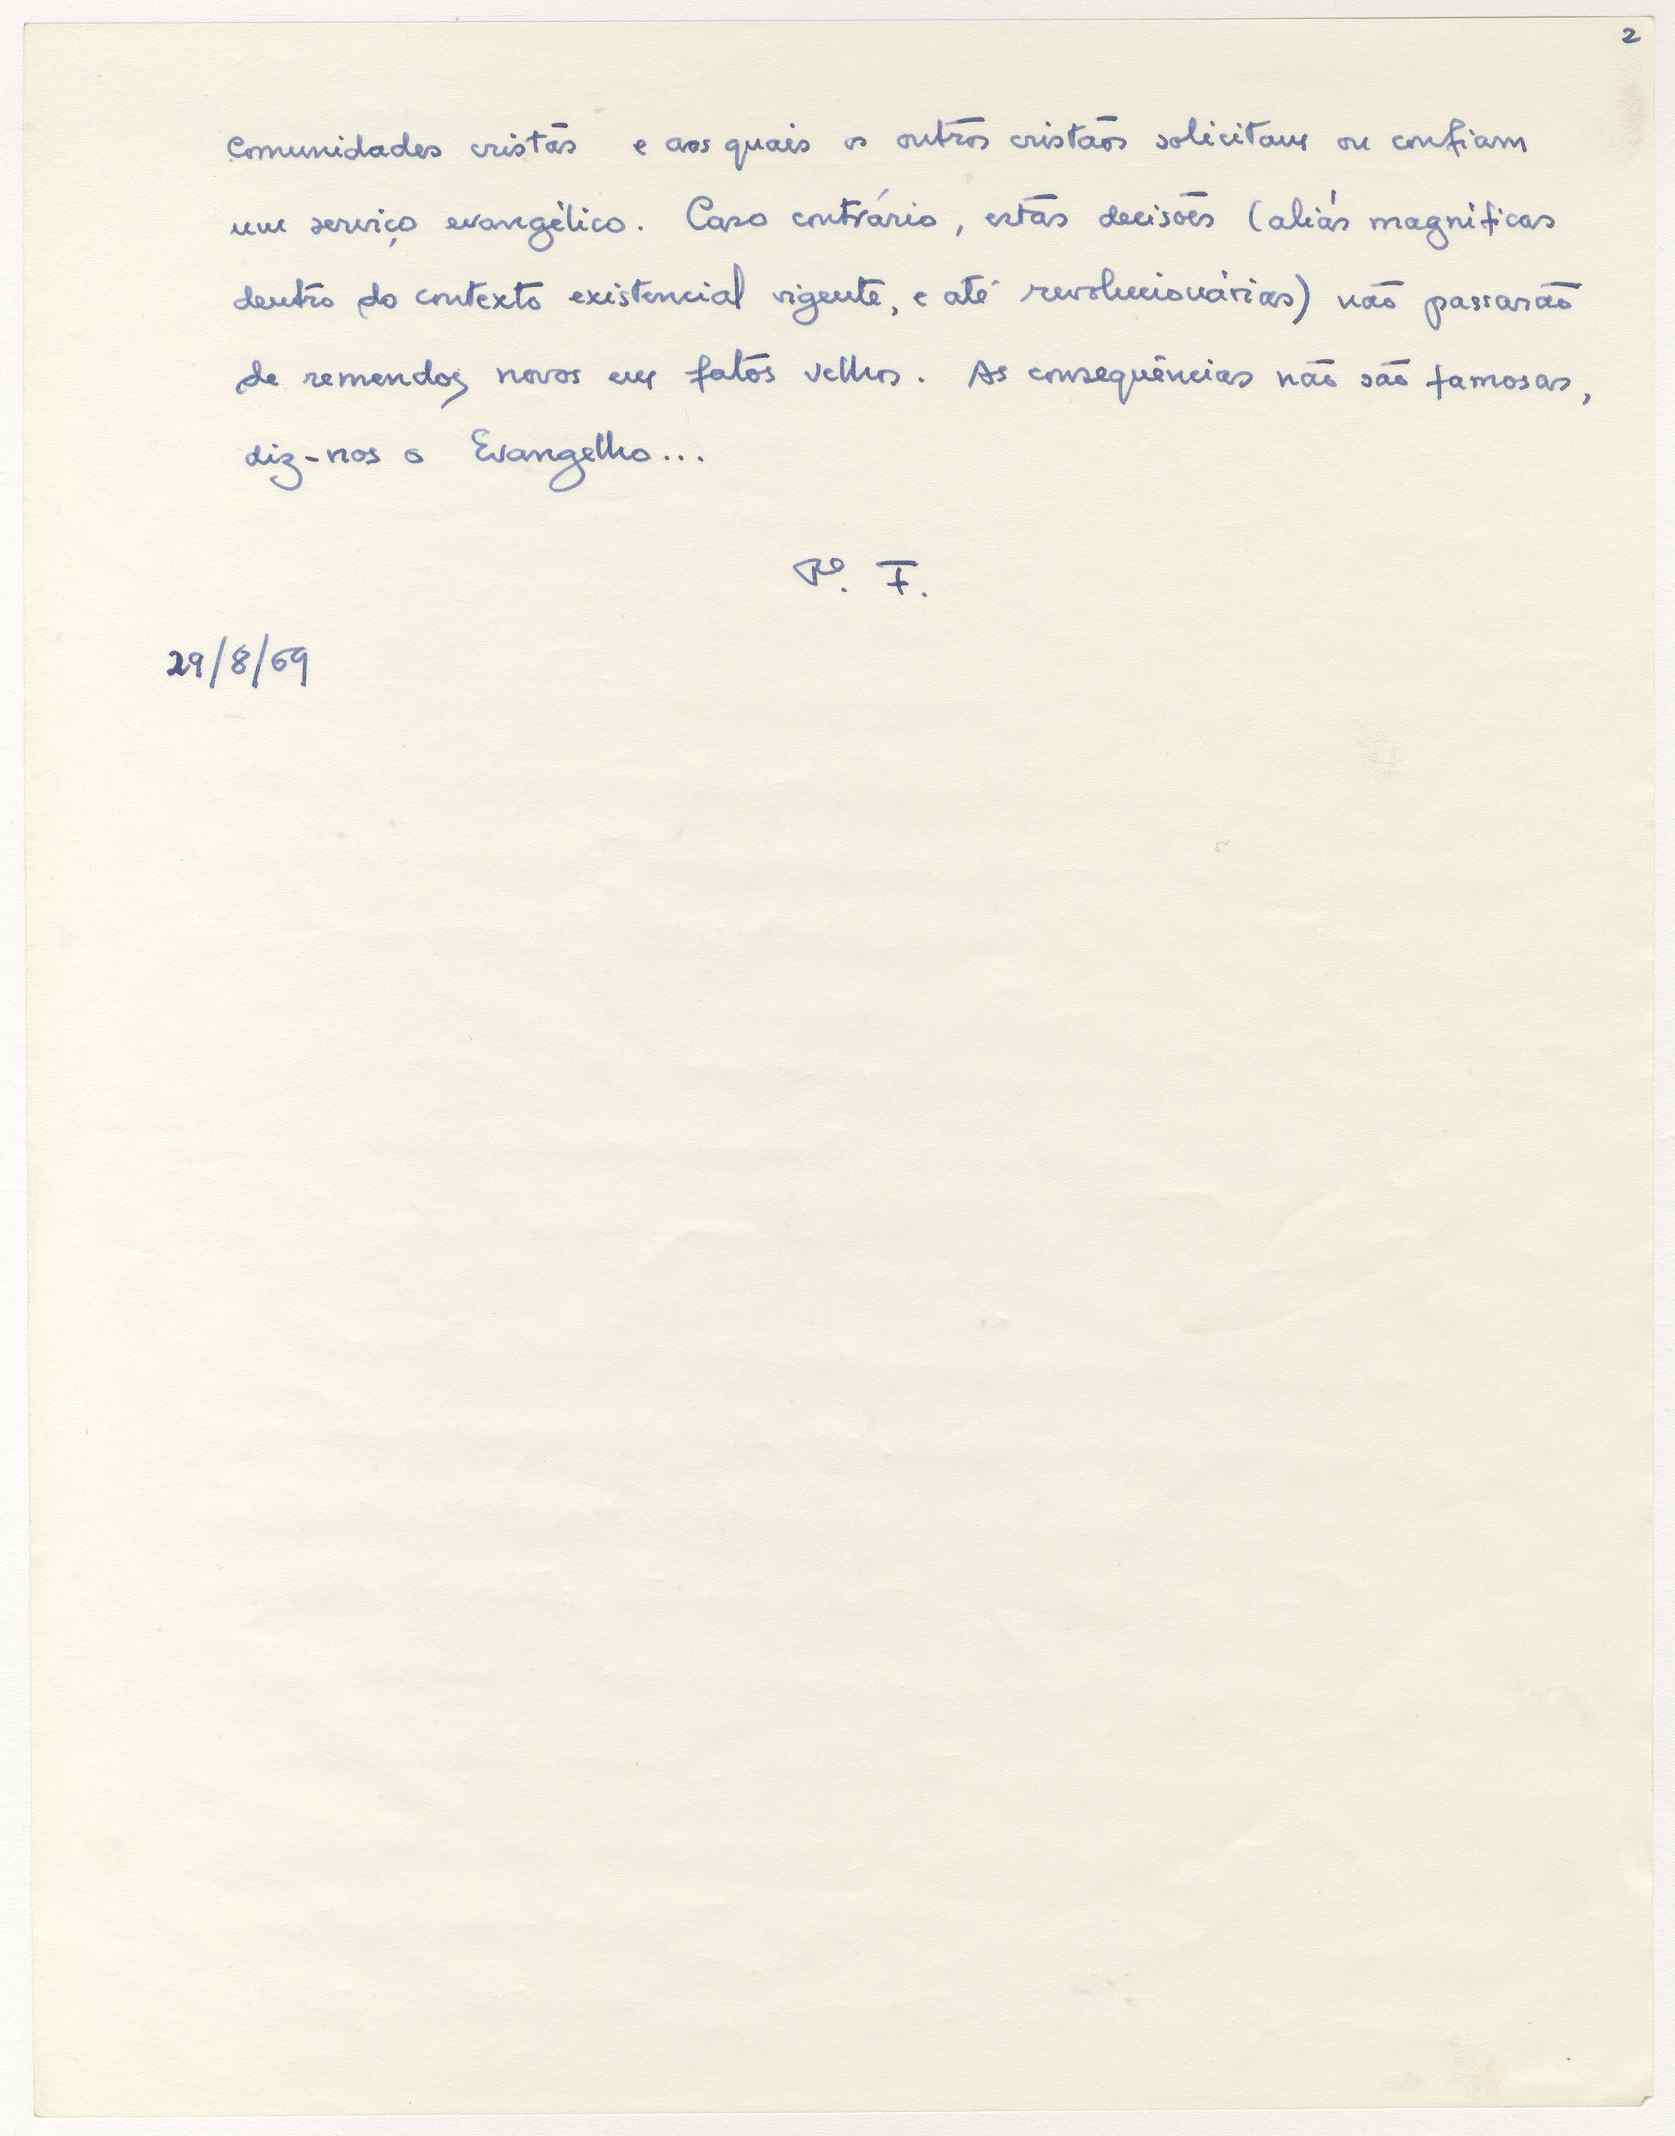 2
comunidades cristãs e aos quais os outros cristãos solicitam ou confiam
um serviço evangélico. Caso contrário, estas decisões (aliás magníficas
dentro do contexto existencial vigente, e até revolucionárias) não passarão
de remendos novos em fatos velhos. As consequências não são famosas,
diz-nos o Evangelho...
Pe. F.
29/8/69